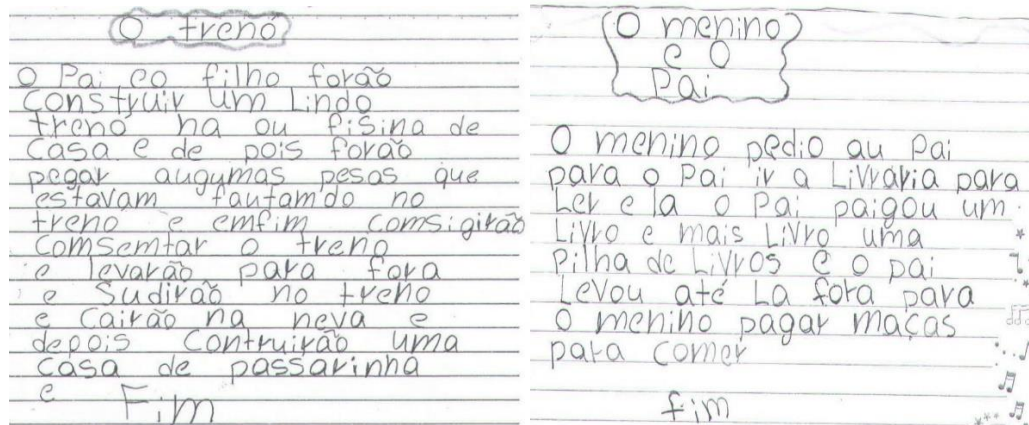 O trenó
O Pai eo filho forão
Construir um Lindo
treno na ou fisina de
Casa e de pois forão
pegar augumas pesas que
estavam fautamdo no
treno e emfim comsigirão
Comsemtar o treno
e levarão para fora
e Sudirão no treno
e Cairão na neva e
depois Contruirão uma
casa de passarinha
e Fim
O menino
e O
Pai
O menino pedio au Pai
para o Pai ir a Livraria para
Ler e la o Pai paigou um
Livro e mais Livro uma
Pilha de Livros e o pai
Levou até La fora para
O menino pagar maças
para comer
fim